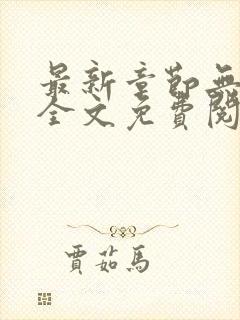 最新章節無
全文免費閱
賈茹馬